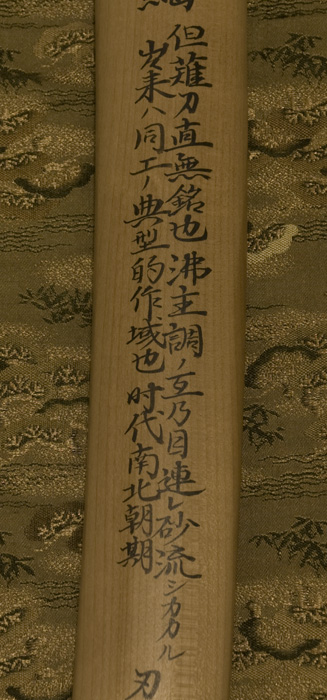 但薙刀直無銘也沸主調ノ互乃目連レ砂流シカカル
出来ハ同工ノ典型的作域也时代南北朝期
刃